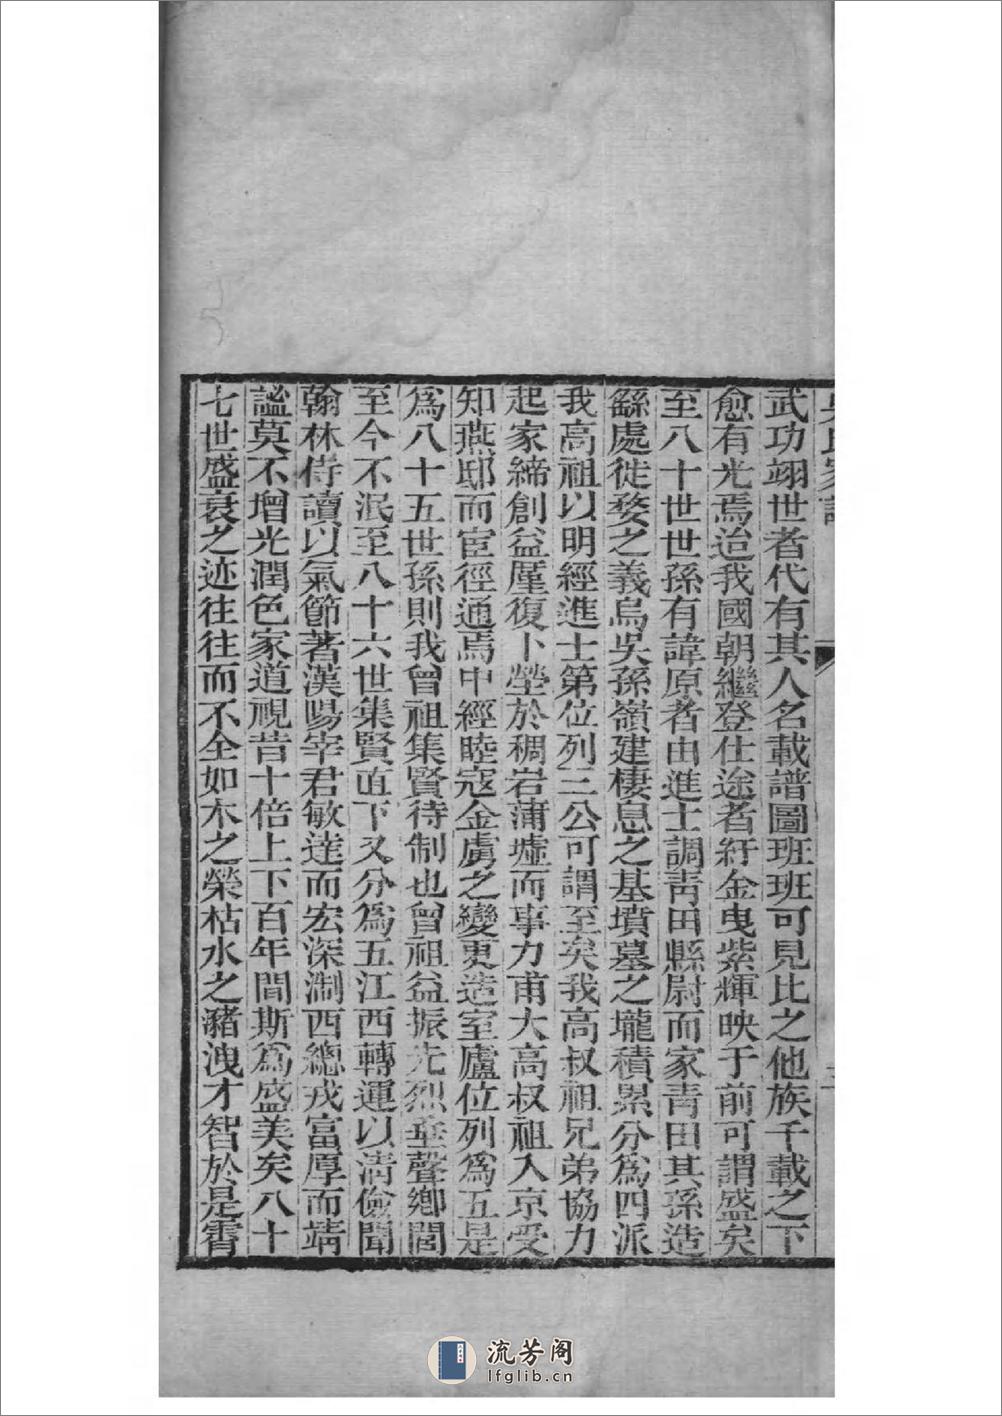 武功翊世者代有其人名載譜圖班班可見比之他族千載之下
愈有光焉迨我國朝繼登仕途者紆金曳紫輝映于前可謂盛矣
至八十世世孫有諱原者由進士調靑田縣尉而家靑田其孫造
繇處徙婺之義烏吳孫嶺建棲息之基墳墓之壠積累分爲四派
我高祖以明經進士第位列三公可謂至矣我高叔祖兄弟協力
起家締創益厪復卜塋於稠岩蒲墟而事力甫大高叔祖入京受
知燕邸而宦徑通焉中經睦寇金虜之變更造室廬位列爲五是
爲八十五世孫則我曾祖集賢待制也曾祖益振先烈垂聲鄉閭
至今不泯至八十六世集賢直下又分爲五江西轉運以淸儉聞
翰林侍讀以氣節著漢陽宰君敏達而宏深淛西總戎富厚而靖
謐莫不增光潤色家道視昔十倍上下百年間斯為盛美矣八十
七世盛衰之迹往往而不全如木之榮枯水之瀦洩才智於是霄
流芳阁
lfglib.cn